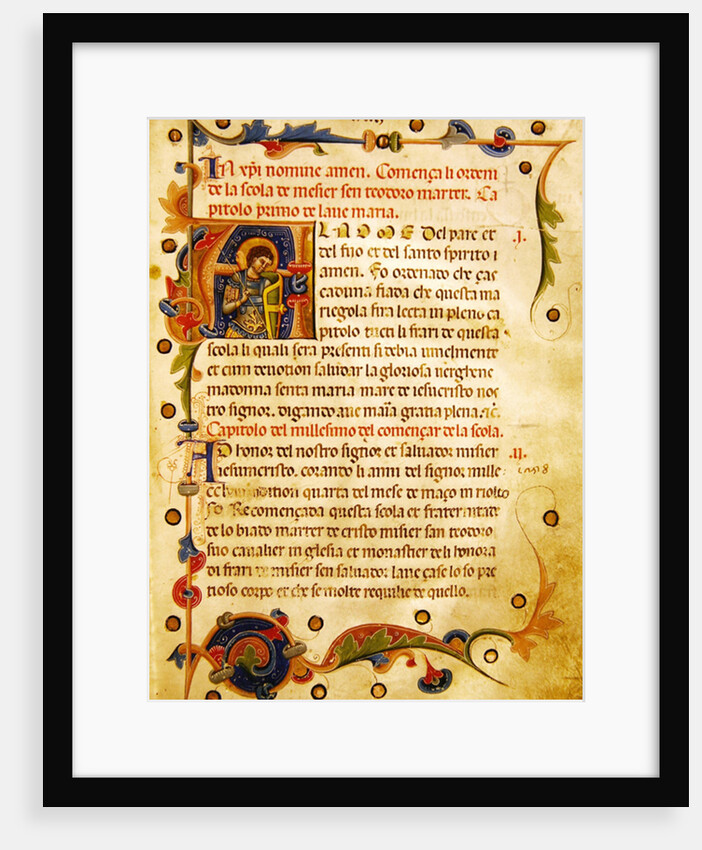 In xp̄i nomine amen. Comença li ordeni
de la scola de mesier sen teodoro marter. Ca
pitolo primo de laue maria.
Lnome del pare et .j.
del fiio et del santo spirito i
amen. Fo ordenado che ças
caduna fiada che questa ma
riegola fira lecta in pleno ca
pitolo tuti li frari de questa
scola li quali sera presenti si debia
et cum deuotion saludar la gloriosa uerghene
madonna senta maria mare de iesucristo nos
tro signor. digando aue maria gratia plena. τč.
Capitolo del millesimo del començar de la scola. .ij.
AD honor del nostro signor et saluador misier
iesumcristo. corando li anni del signor mille
quarta del mese de março in riolto
fo Recomençada questa scola et fraternitate
de lo biado marter de cristo misier san teodoro
suo caualier in glesia et monastier de li honora
di frari de misier sen saluador laue çase lo so pre
tioso corpo et che se molte requilie de quello.